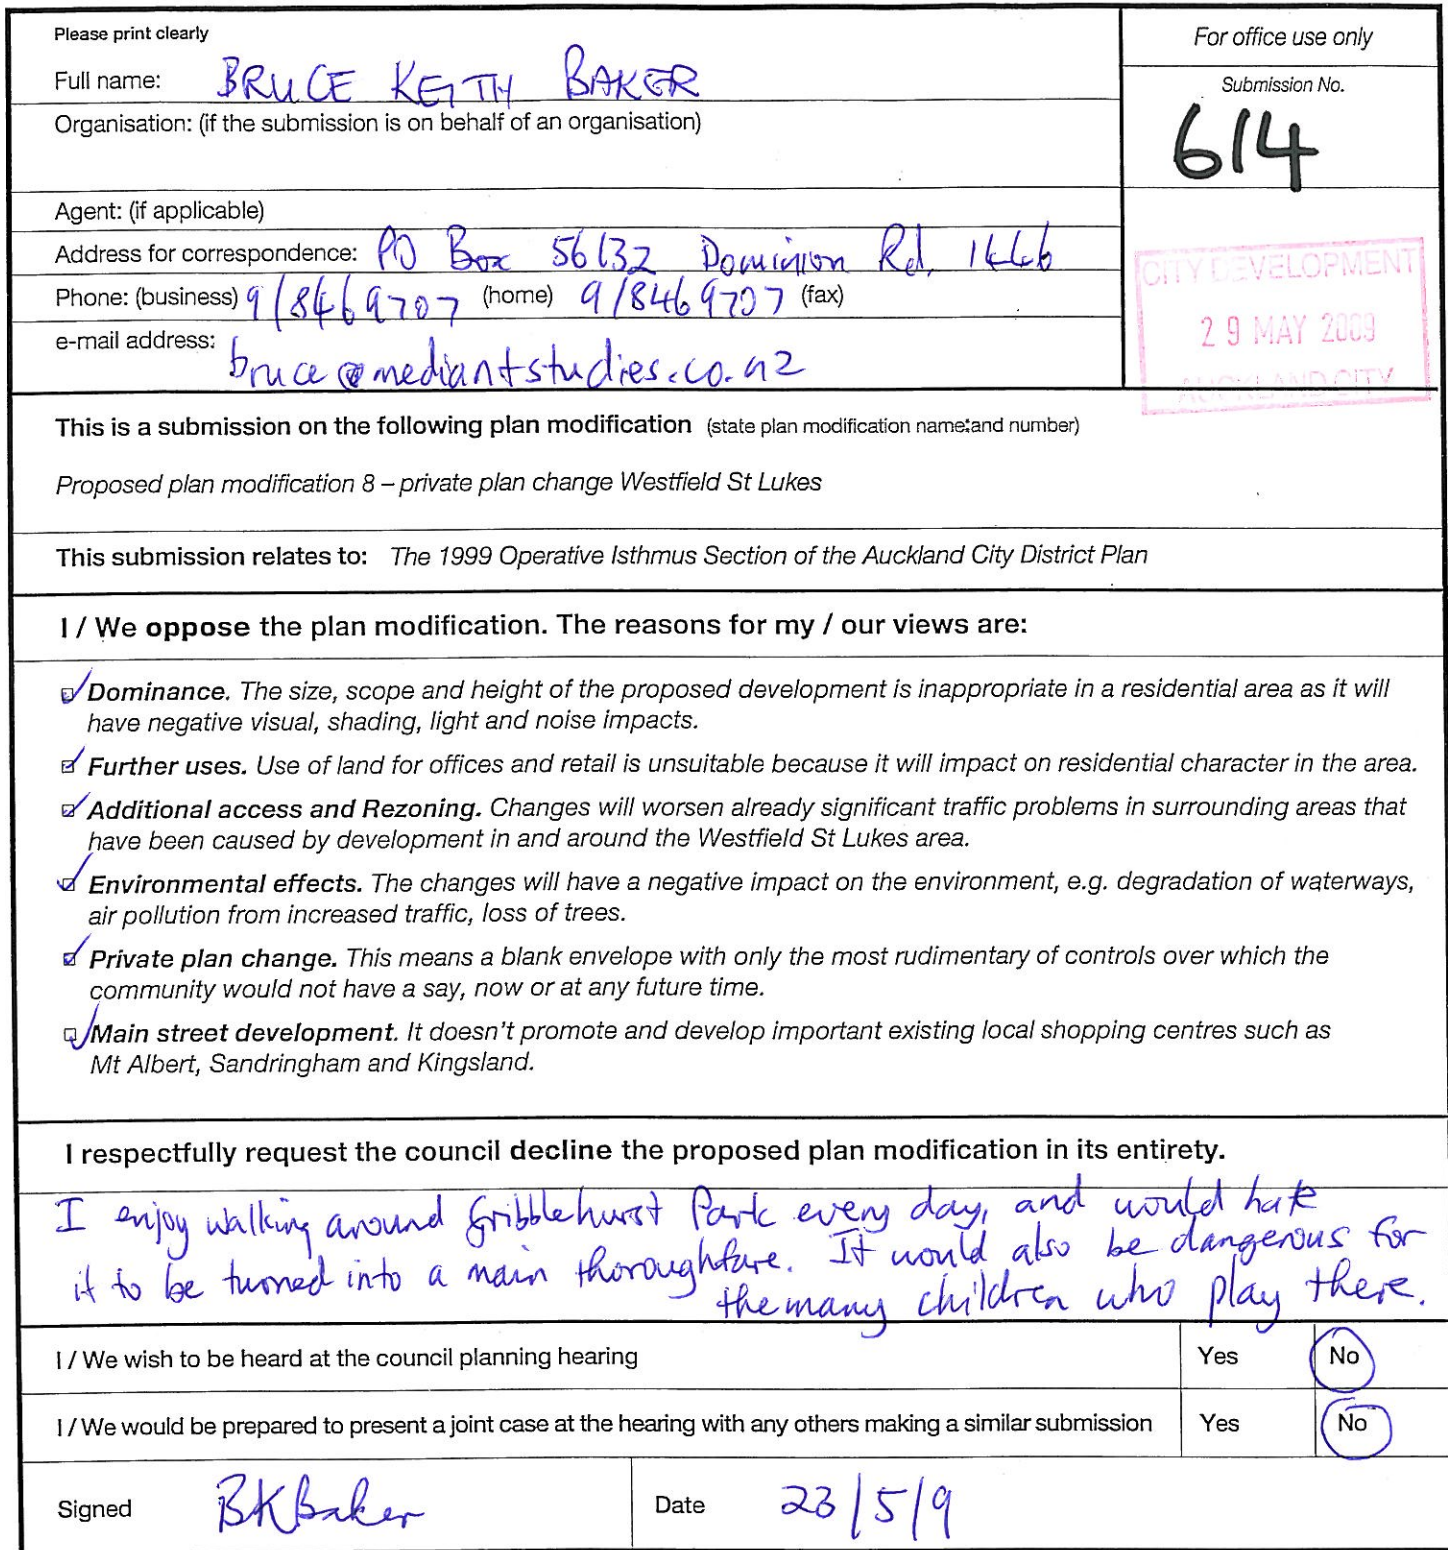 Please print clearly
For office use only
Full name: BRUCE KEITH BAKER
Submission No.
614
Organisation: (if the submission is on behalf of an organisation)
Agent: (if applicable)
Address for correspondence: PO Box 56132 Dominion Rd, 1446
Phone: (business) 9/8469707 (home) 9/8469707 (fax)
e-mail address: bruce@mediantstudies.co.nz
CITY DEVELOPMENT
29 MAY 2009
AUCKLAND CITY
This is a submission on the following plan modification (state plan modification name and number)
Proposed plan modification 8 – private plan change Westfield St Lukes
This submission relates to: The 1999 Operative Isthmus Section of the Auckland City District Plan
I / We oppose the plan modification. The reasons for my / our views are:
Dominance. The size, scope and height of the proposed development is inappropriate in a residential area as it will
have negative visual, shading, light and noise impacts.
Further uses. Use of land for offices and retail is unsuitable because it will impact on residential character in the area.
Additional access and Rezoning. Changes will worsen already significant traffic problems in surrounding areas that
have been caused by development in and around the Westfield St Lukes area.
Environmental effects. The changes will have a negative impact on the environment, e.g. degradation of waterways,
air pollution from increased traffic, loss of trees.
Private plan change. This means a blank envelope with only the most rudimentary of controls over which the
community would not have a say, now or at any future time.
Main street development. It doesn't promote and develop important existing local shopping centres such as
Mt Albert, Sandringham and Kingsland.
I respectfully request the council decline the proposed plan modification in its entirety.
I enjoy walking around Gribblehurst Park every day, and would hate
it to be turned into a main thoroughfare. It would also be dangerous for
the many children who play there.
I / We wish to be heard at the council planning hearing Yes No
I / We would be prepared to present a joint case at the hearing with any others making a similar submission Yes No
Signed BKBaker Date 23/5/9